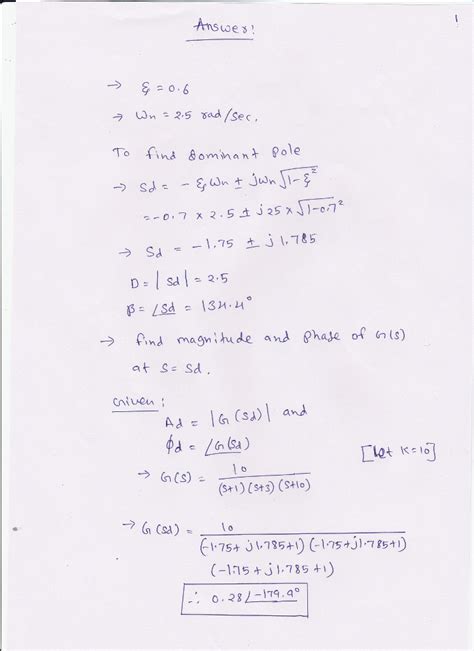 1
Answer!
→ ξ = 0.6
→ Wn = 2.5 rad/sec.
To find dominant pole
→ Sd = - ξWn ± jWn√1-ξ²
= -0.7 x 2.5 ± j25 x √1-0.7²
→ Sd = -1.75 ± j1.785
D = |Sd| = 2.5
β = ∠Sd = 134.4°
→ find magnitude and phase of G(s)
at S = Sd.
Given :
Ad = |G(Sd)| and
ϕd = ∠G(Sd)
[let K=10]
→ G(S) = 10
(S+1) (S+3) (S+10)
→ G(Sd) = 10
(-1.75+ j1.785+1) (-1.75+j1.785+1)
(-1.75 + j1.785 +1)
∴ 0.28∠-179.9°